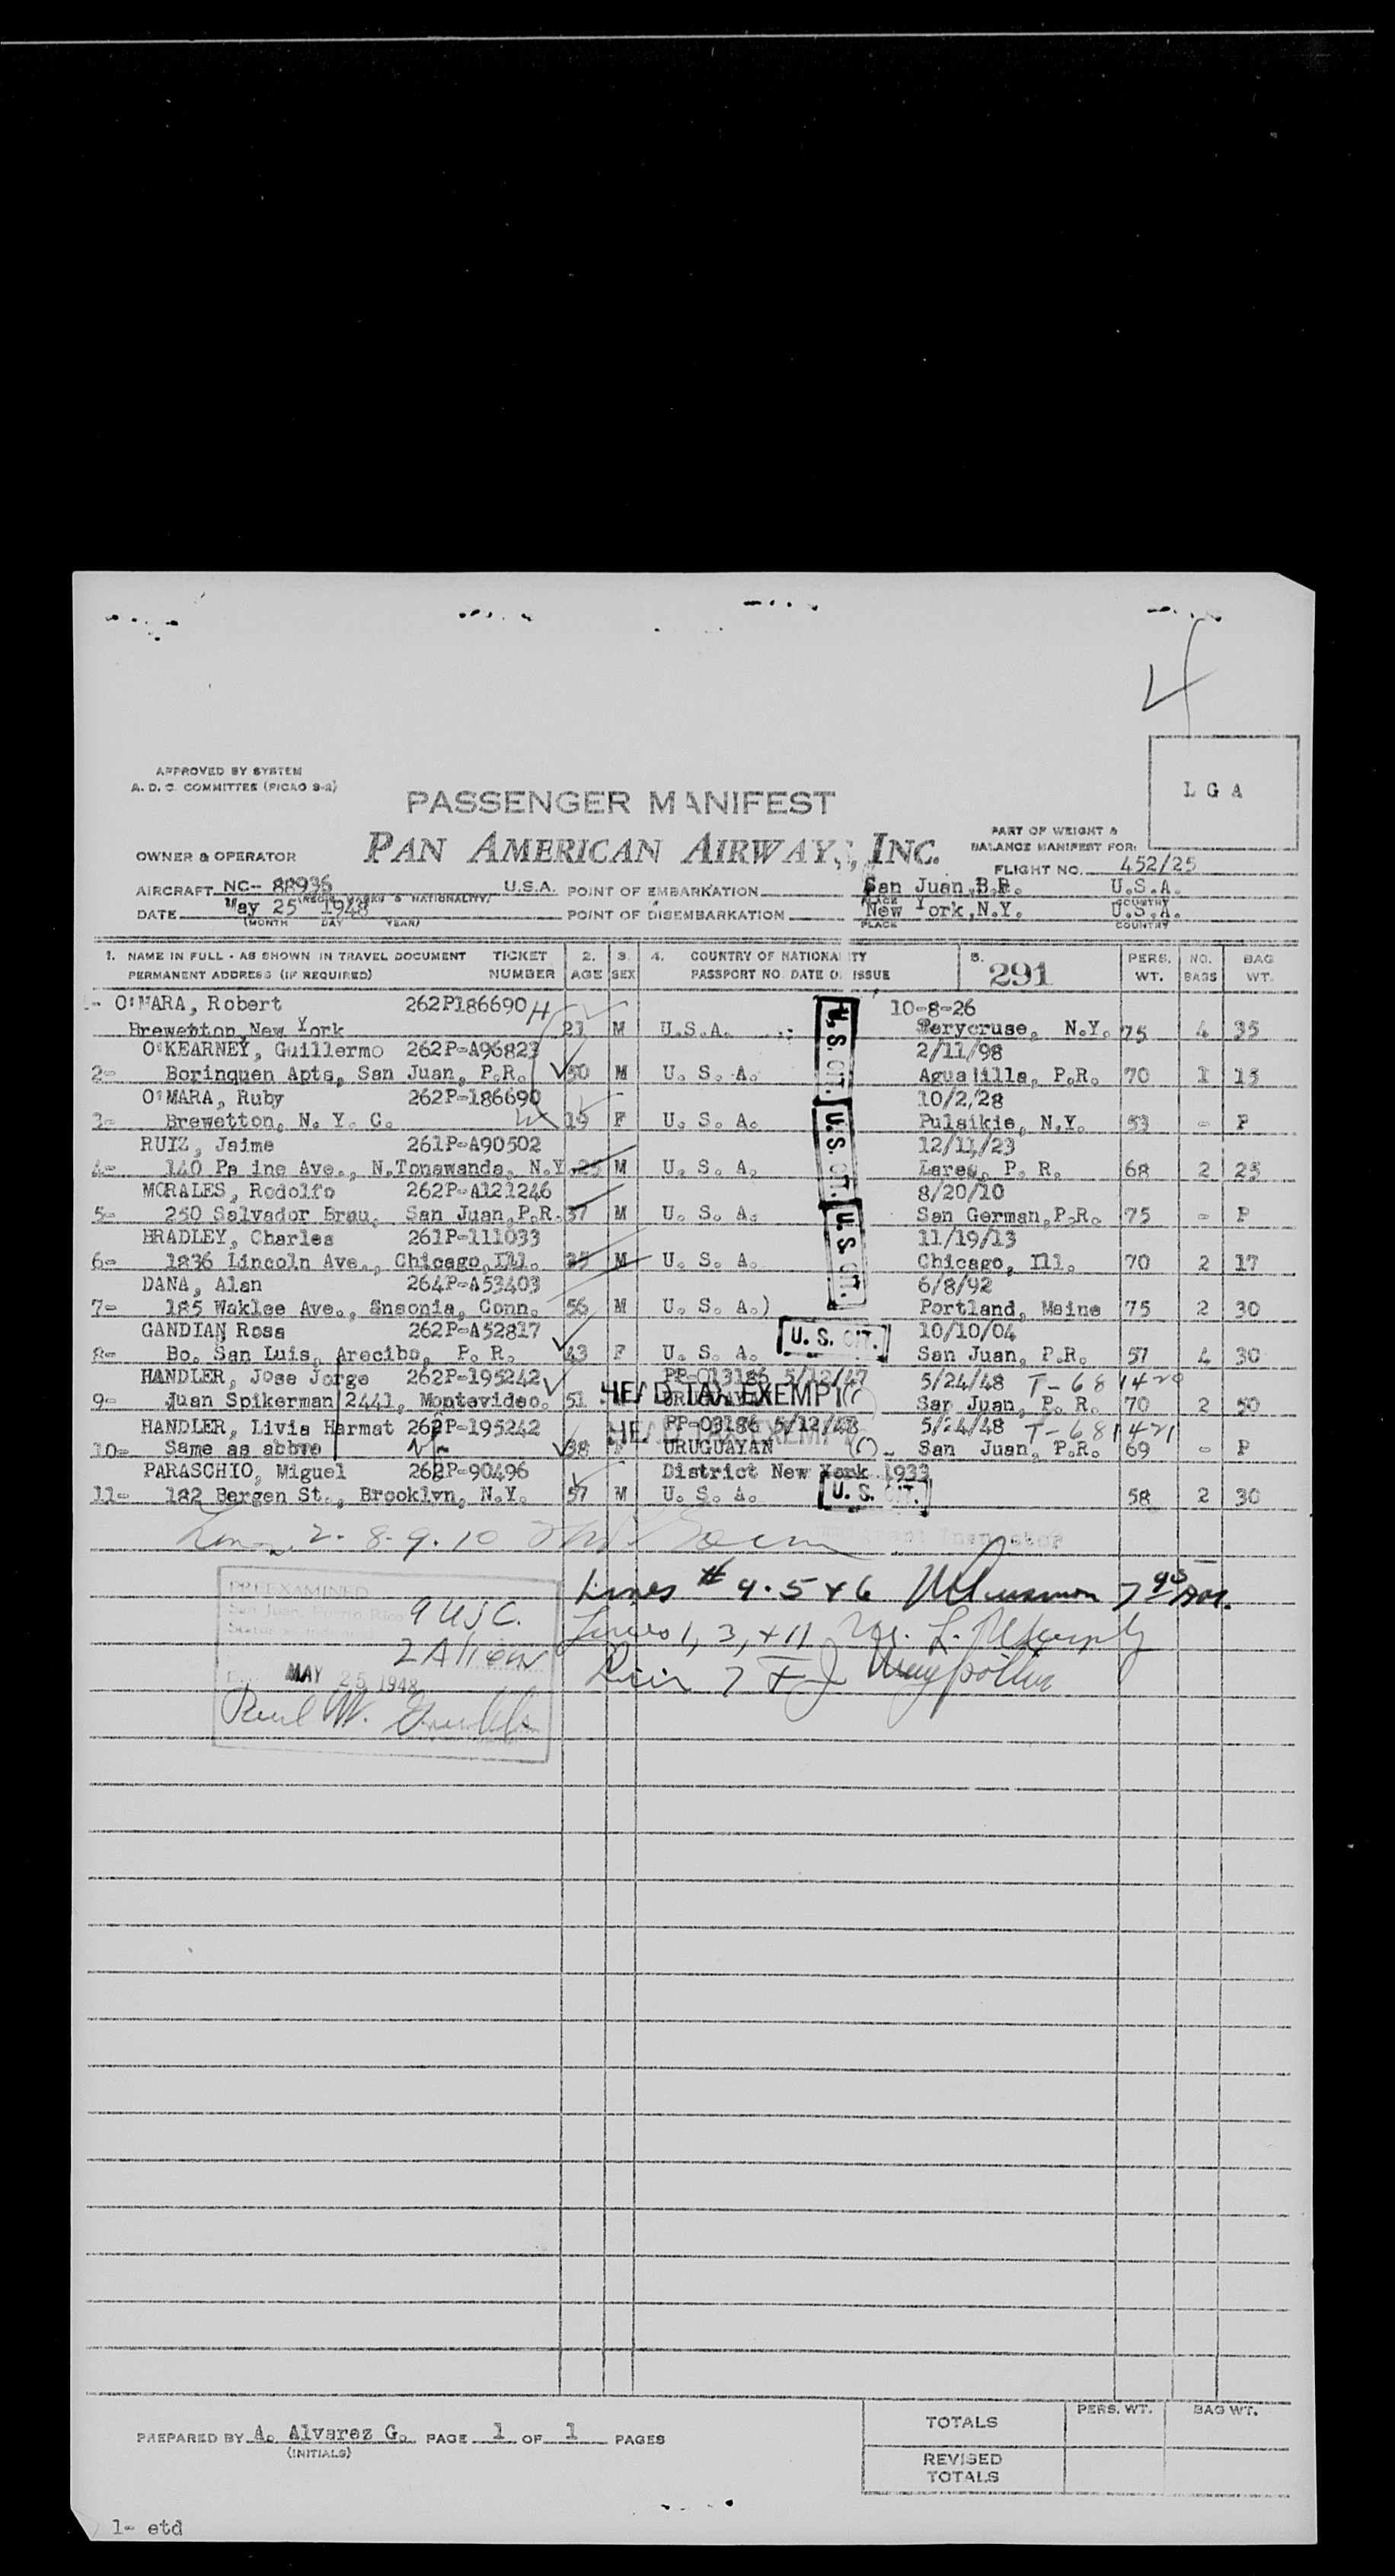 4
APPROVED BY SYSTEM
A. D. C. COMMITTEE (PICAO 9-2)
L G A
PASSENGER MANIFEST
PAN AMERICAN AIRWAYS, INC.
PART OF WEIGHT &
BALANCE MANIFEST FOR:
OWNER & OPERATOR
FLIGHT NO. 452/25
AIRCRAFT NC- 88936 U.S.A. POINT OF EMBARKATION San Juan, P.R. U.S.A.
(REGIS. MARKS & NATIONALITY) PLACE COUNTRY
DATE May 25 1948 POINT OF DISEMBARKATION New York,N.Y. U.S.A.
(MONTH DAY YEAR) PLACE COUNTRY
1. NAME IN FULL - AS SHOWN IN TRAVEL DOCUMENT TICKET 2. 3. 4. COUNTRY OF NATIONALITY 5. PERS. NO. BAG
PERMANENT ADDRESS (IF REQUIRED) NUMBER AGE SEX PASSPORT NO. DATE OF ISSUE 291 WT. BAGS WT.
O'MARA, Robert 262P186690 10-8-26
Brewetton New York 21 M U.S.A. U. S. CIT. N.Y. 75 4 35
O'KEARNEY, Guillermo 262P-A96823 2/11/98
2- Borinquen Apts, San Juan, P.R. 50 M U. S. A. Aguadilla, P.R. 70 1 15
O'MARA, Ruby 262P-186690 10/2/28
3- Brewetton, N. Y. C. 19 F U. S. A. U. S. CIT. Pulsikie, N.Y. 53 - P
RUIZ, Jaime 261P-A90502 12/11/23
4- 140 Pa ine Ave., N.Tonawanda, N.Y. 25 M U. S. A. Lares, P. R. 68 2 25
MORALES, Rodolfo 262P-A121246 8/20/10
5- 250 Salvador Brau, San Juan,P.R. 37 M U. S. A. U. S. CIT. San German,P.R. 75 - P
BRADLEY, Charles 261P-111033 11/19/13
6- 1836 Lincoln Ave., Chicago,Ill. 35 M U. S. A. Chicago, Ill. 70 2 17
DANA, Alan 264P-A53403 6/8/92
7- 185 Waklee Ave., Ansonia, Conn. 56 M U. S. A.) Portland, Maine 75 2 30
GANDIAN Rosa 262P-A52817 10/10/04
8- Bo. San Luis, Arecibo, P. R. 43 F U. S. A. U. S. CIT. San Juan, P.R. 57 4 30
HANDLER, Jose Jorge 262P-195242 PP-013186 5/12/47 5/24/48 T-681420
9- Juan Spikerman 2441, Montevideo. 51 HEAD TAX EXEMPT URUGUAYAN San Juan, P. R. 70 2 50
HANDLER, Livia Harmat 262P-195242 PP-03186 5/12/48 5/24/48 T-681421
10- Same as above 38 F HEAD TAX EXEMPT URUGUAYAN San Juan, P.R. 69 - P
PARASCHIO, Miguel 262P-90496 District New York 1933
11- 182 Bergen St., Brooklyn, N.Y. 57 M U. S. A. U. S. CIT. 58 2 30
2. 8. 9. 10
Immigrant Inspector
Lines # 4. 5 + 6
Lines 1, 3, + 11
7
PREEXAMINED
San Juan, Puerto Rico
9 USC.
2 Alien
MAY 25 1948
Paul W.
PREPARED BY A. Alvarez G. PAGE 1 OF 1 PAGES
(INITIALS)
PERS. WT. BAG WT.
TOTALS
REVISED
TOTALS
1- etd